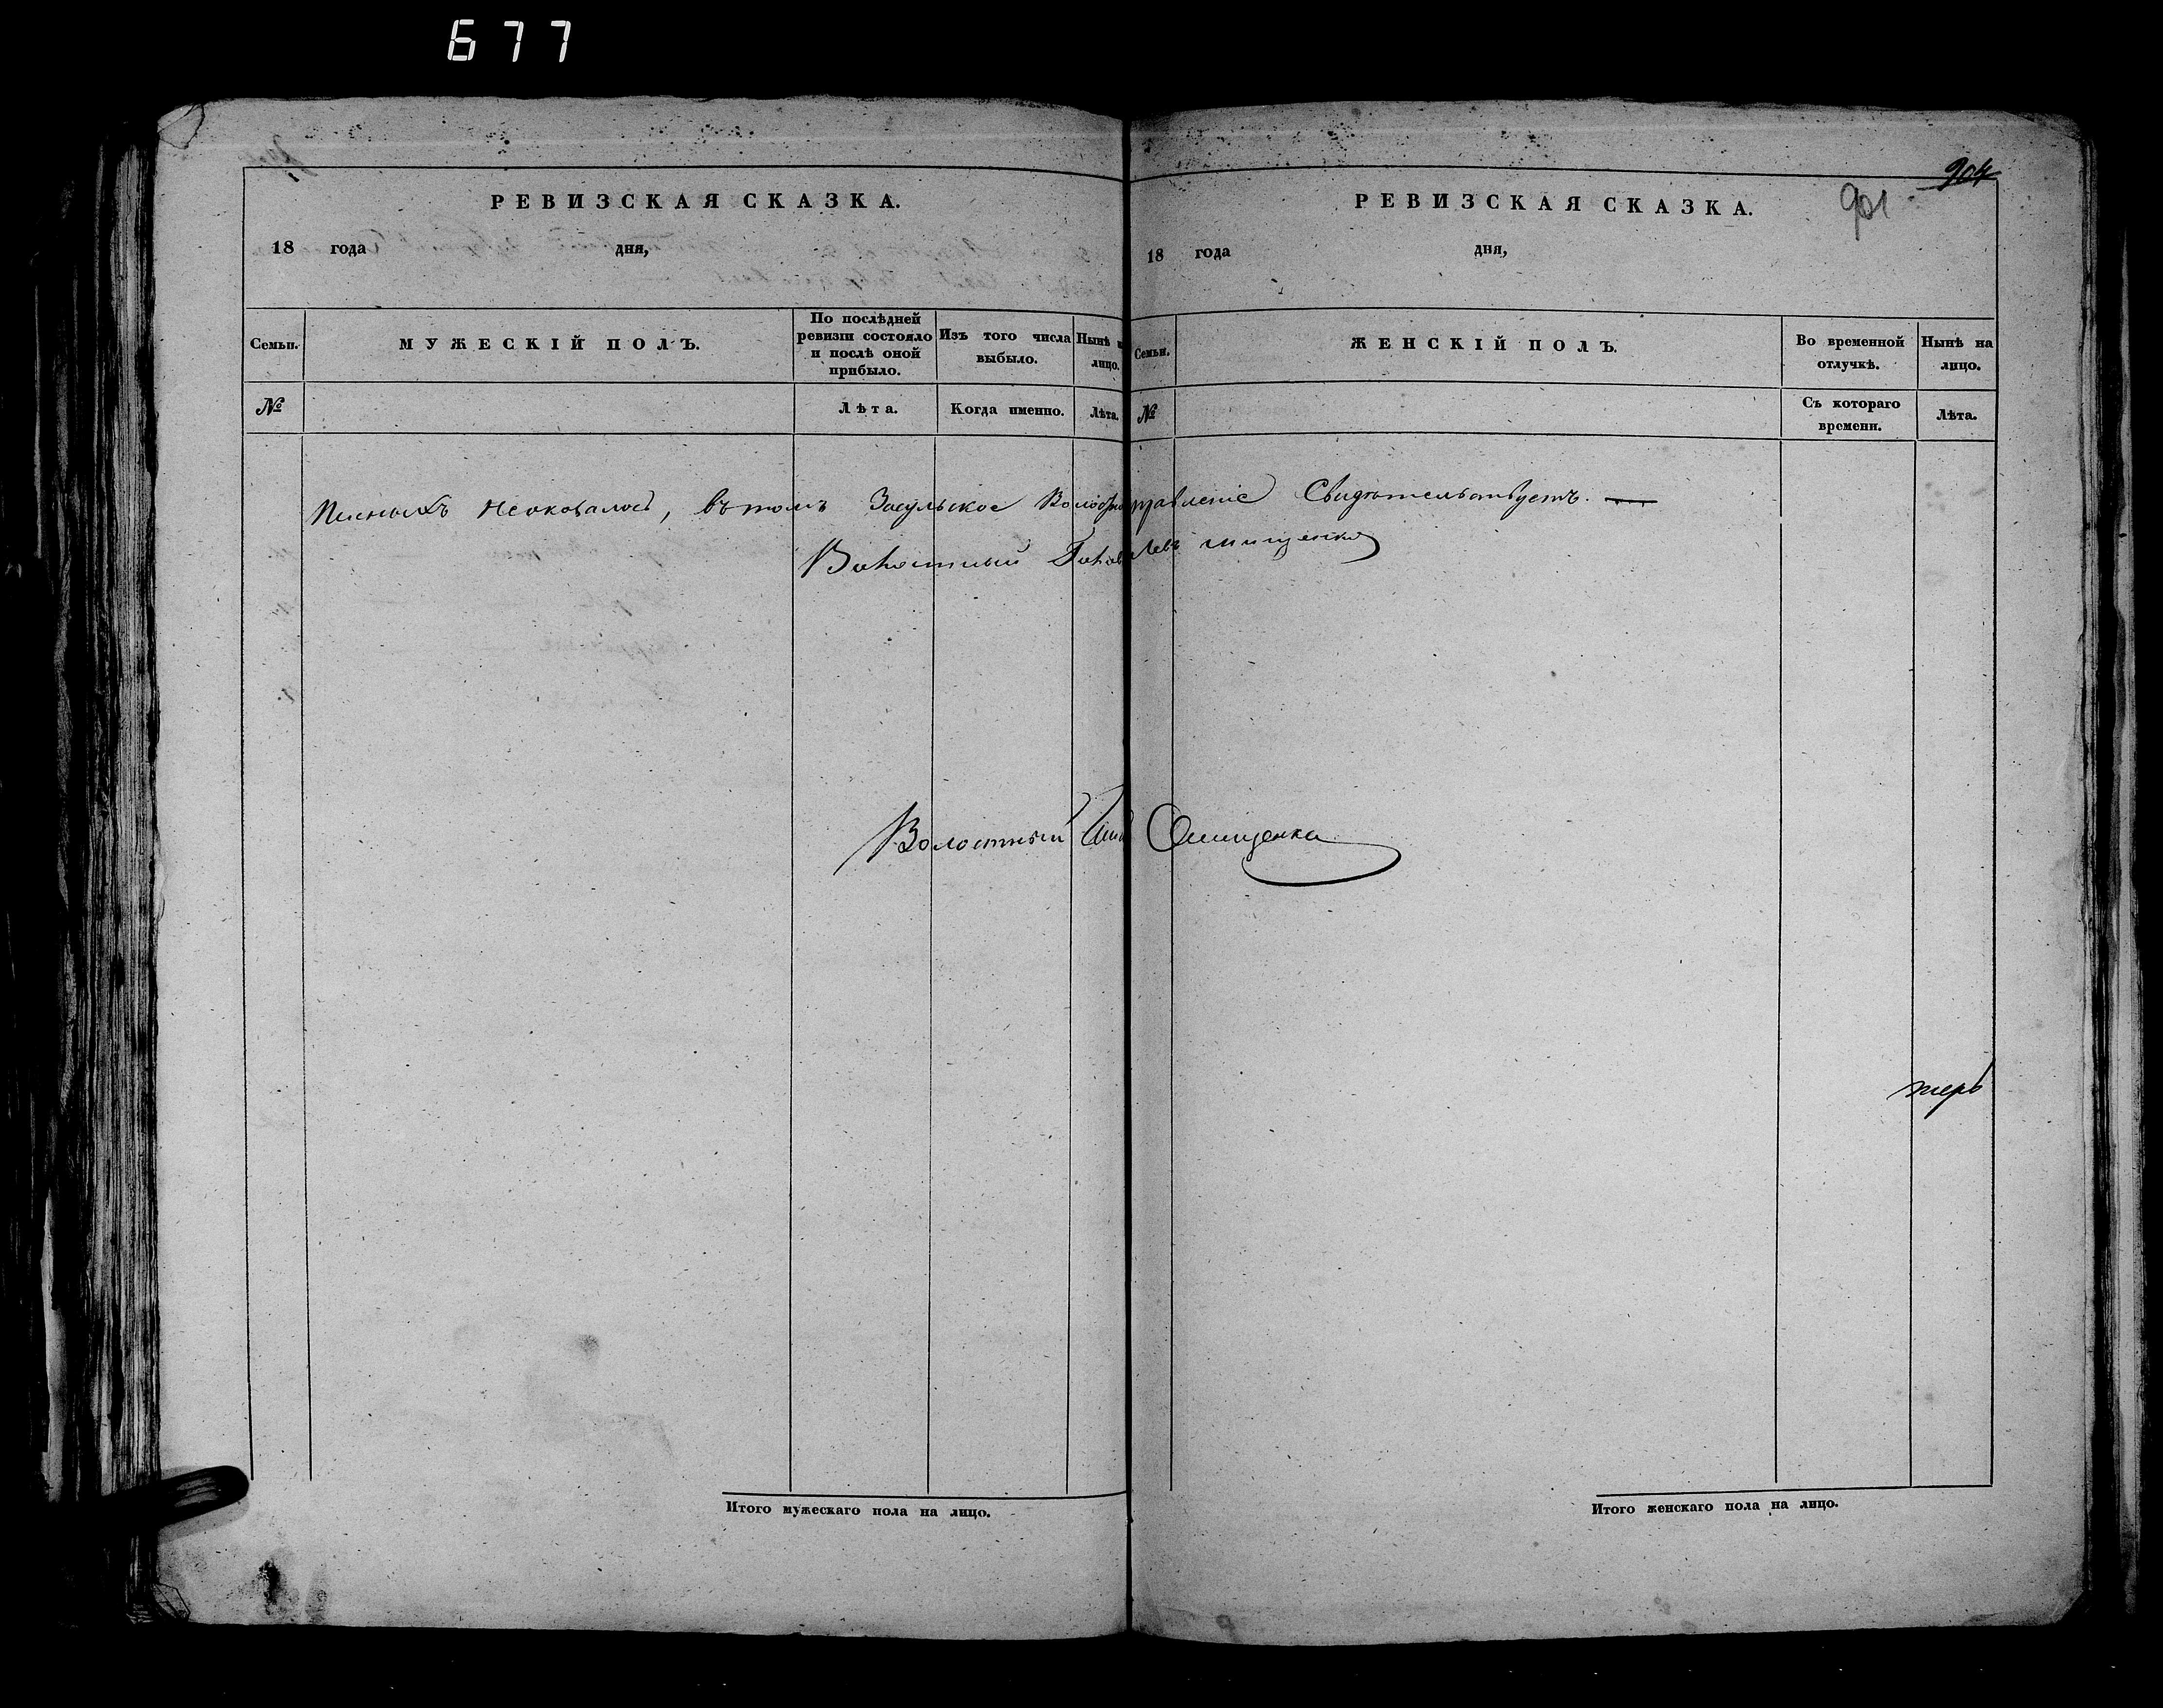 677
904
901
РЕВИЗСКАЯ СКАЗКА.
18 года дня,
Семьи. МУЖЕСКІЙ ПОЛЪ. По послѣдней ревизіи состояло и послѣ оной прибыло. Изъ того числа выбыло. Нынѣ н лицо.
№ Лѣта. Когда именно. Лѣта.
РЕВИЗСКАЯ СКАЗКА.
18 года дня,
Семьи. ЖЕНСКІЙ ПОЛЪ. Во временной отлучкѣ. Нынѣ на лицо.
№ Съ котораго времени. Лѣта.
неоказалось, въ томъ Засульское Волостно правленіе Свидѣтельствуетъ. —
Волостный Голова Левъ мищенко
Волостный Онищенка
Итого мужескаго пола на лицо.
Итого женскаго пола на лицо.